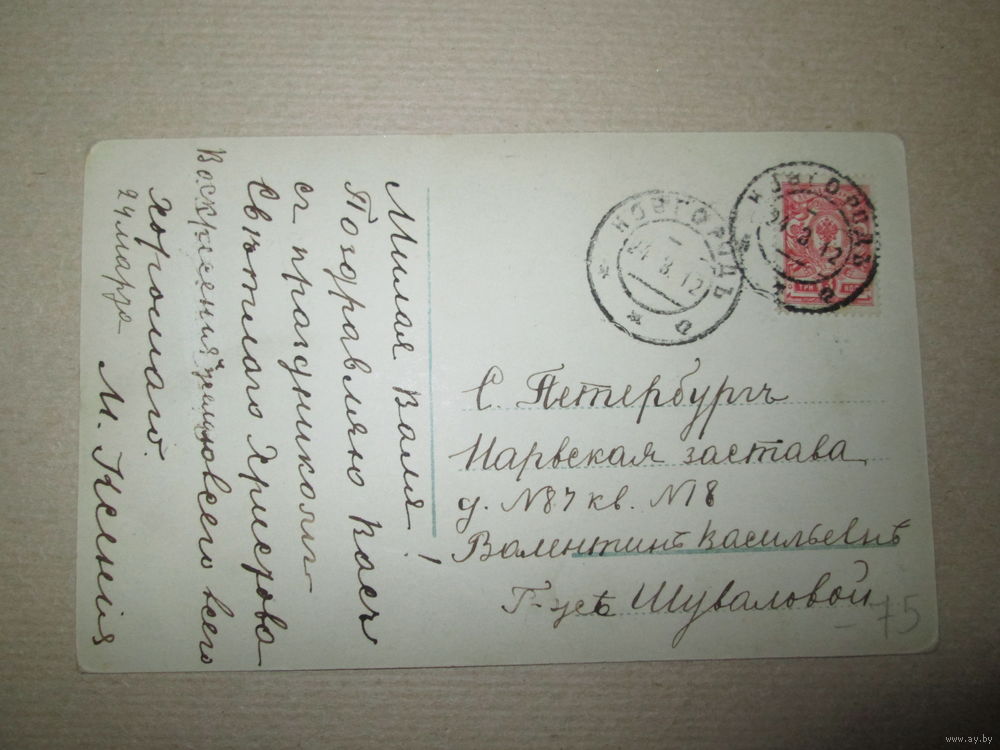 Милая Валя!
Поздравляю Васъ
съ праздникомъ
Свѣтлаго Христова
Воскресенія желаю всего всего
хорошаго.
24 марта М. Ксенія
НОВГОРОДЪ
24 3 12
НОВГОРОДЪ
24 3 12
ТРИ КОП
С. Петербургъ
Нарвская застава
д. № 87 кв. № 18
Валентинѣ Васильевнѣ
Г-жѣ Шуваловой
75
www.ay.by